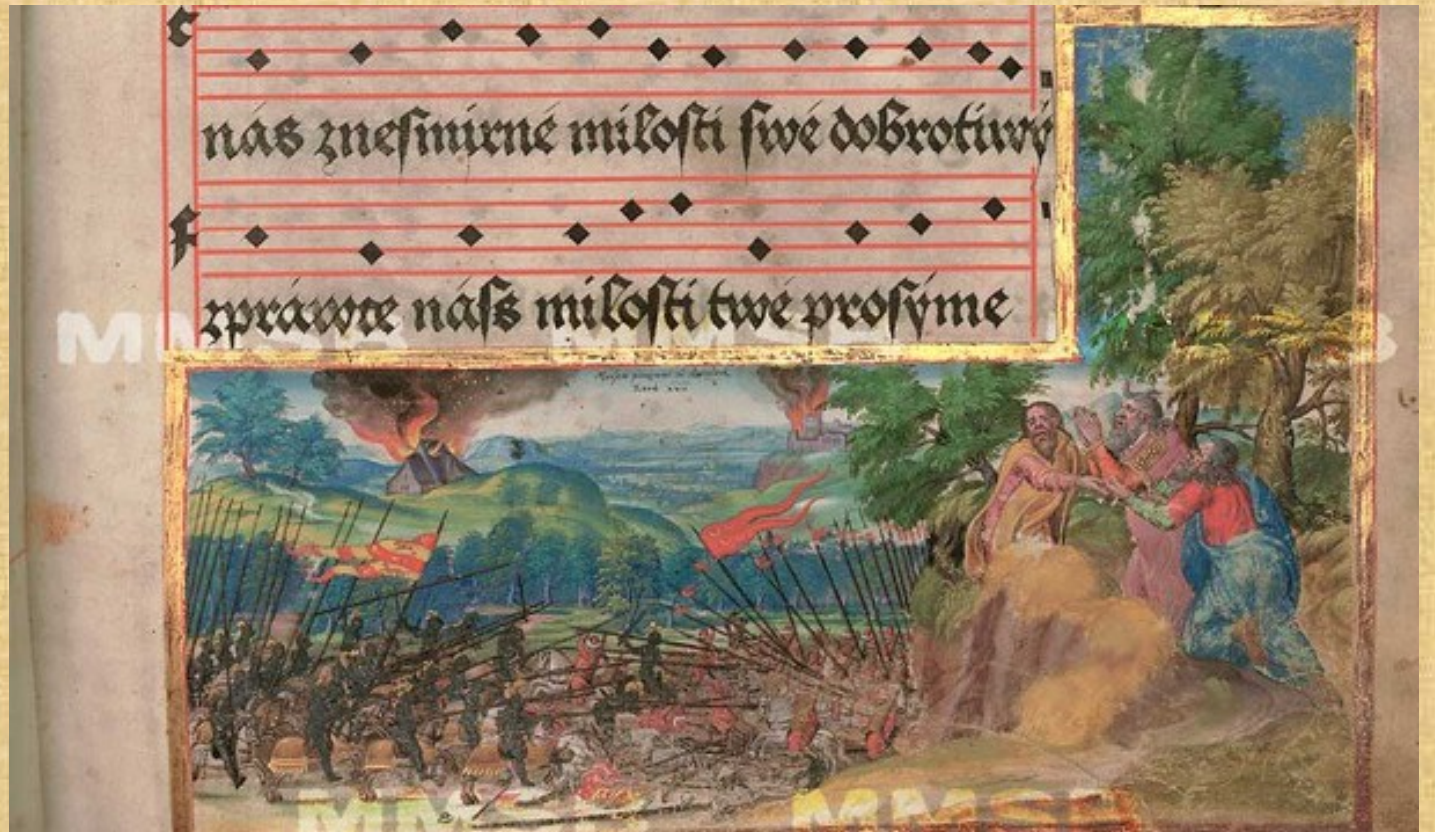 nás znesmirné milosti swé dobrotiwý
zpráwce náss milosti twé prosýme